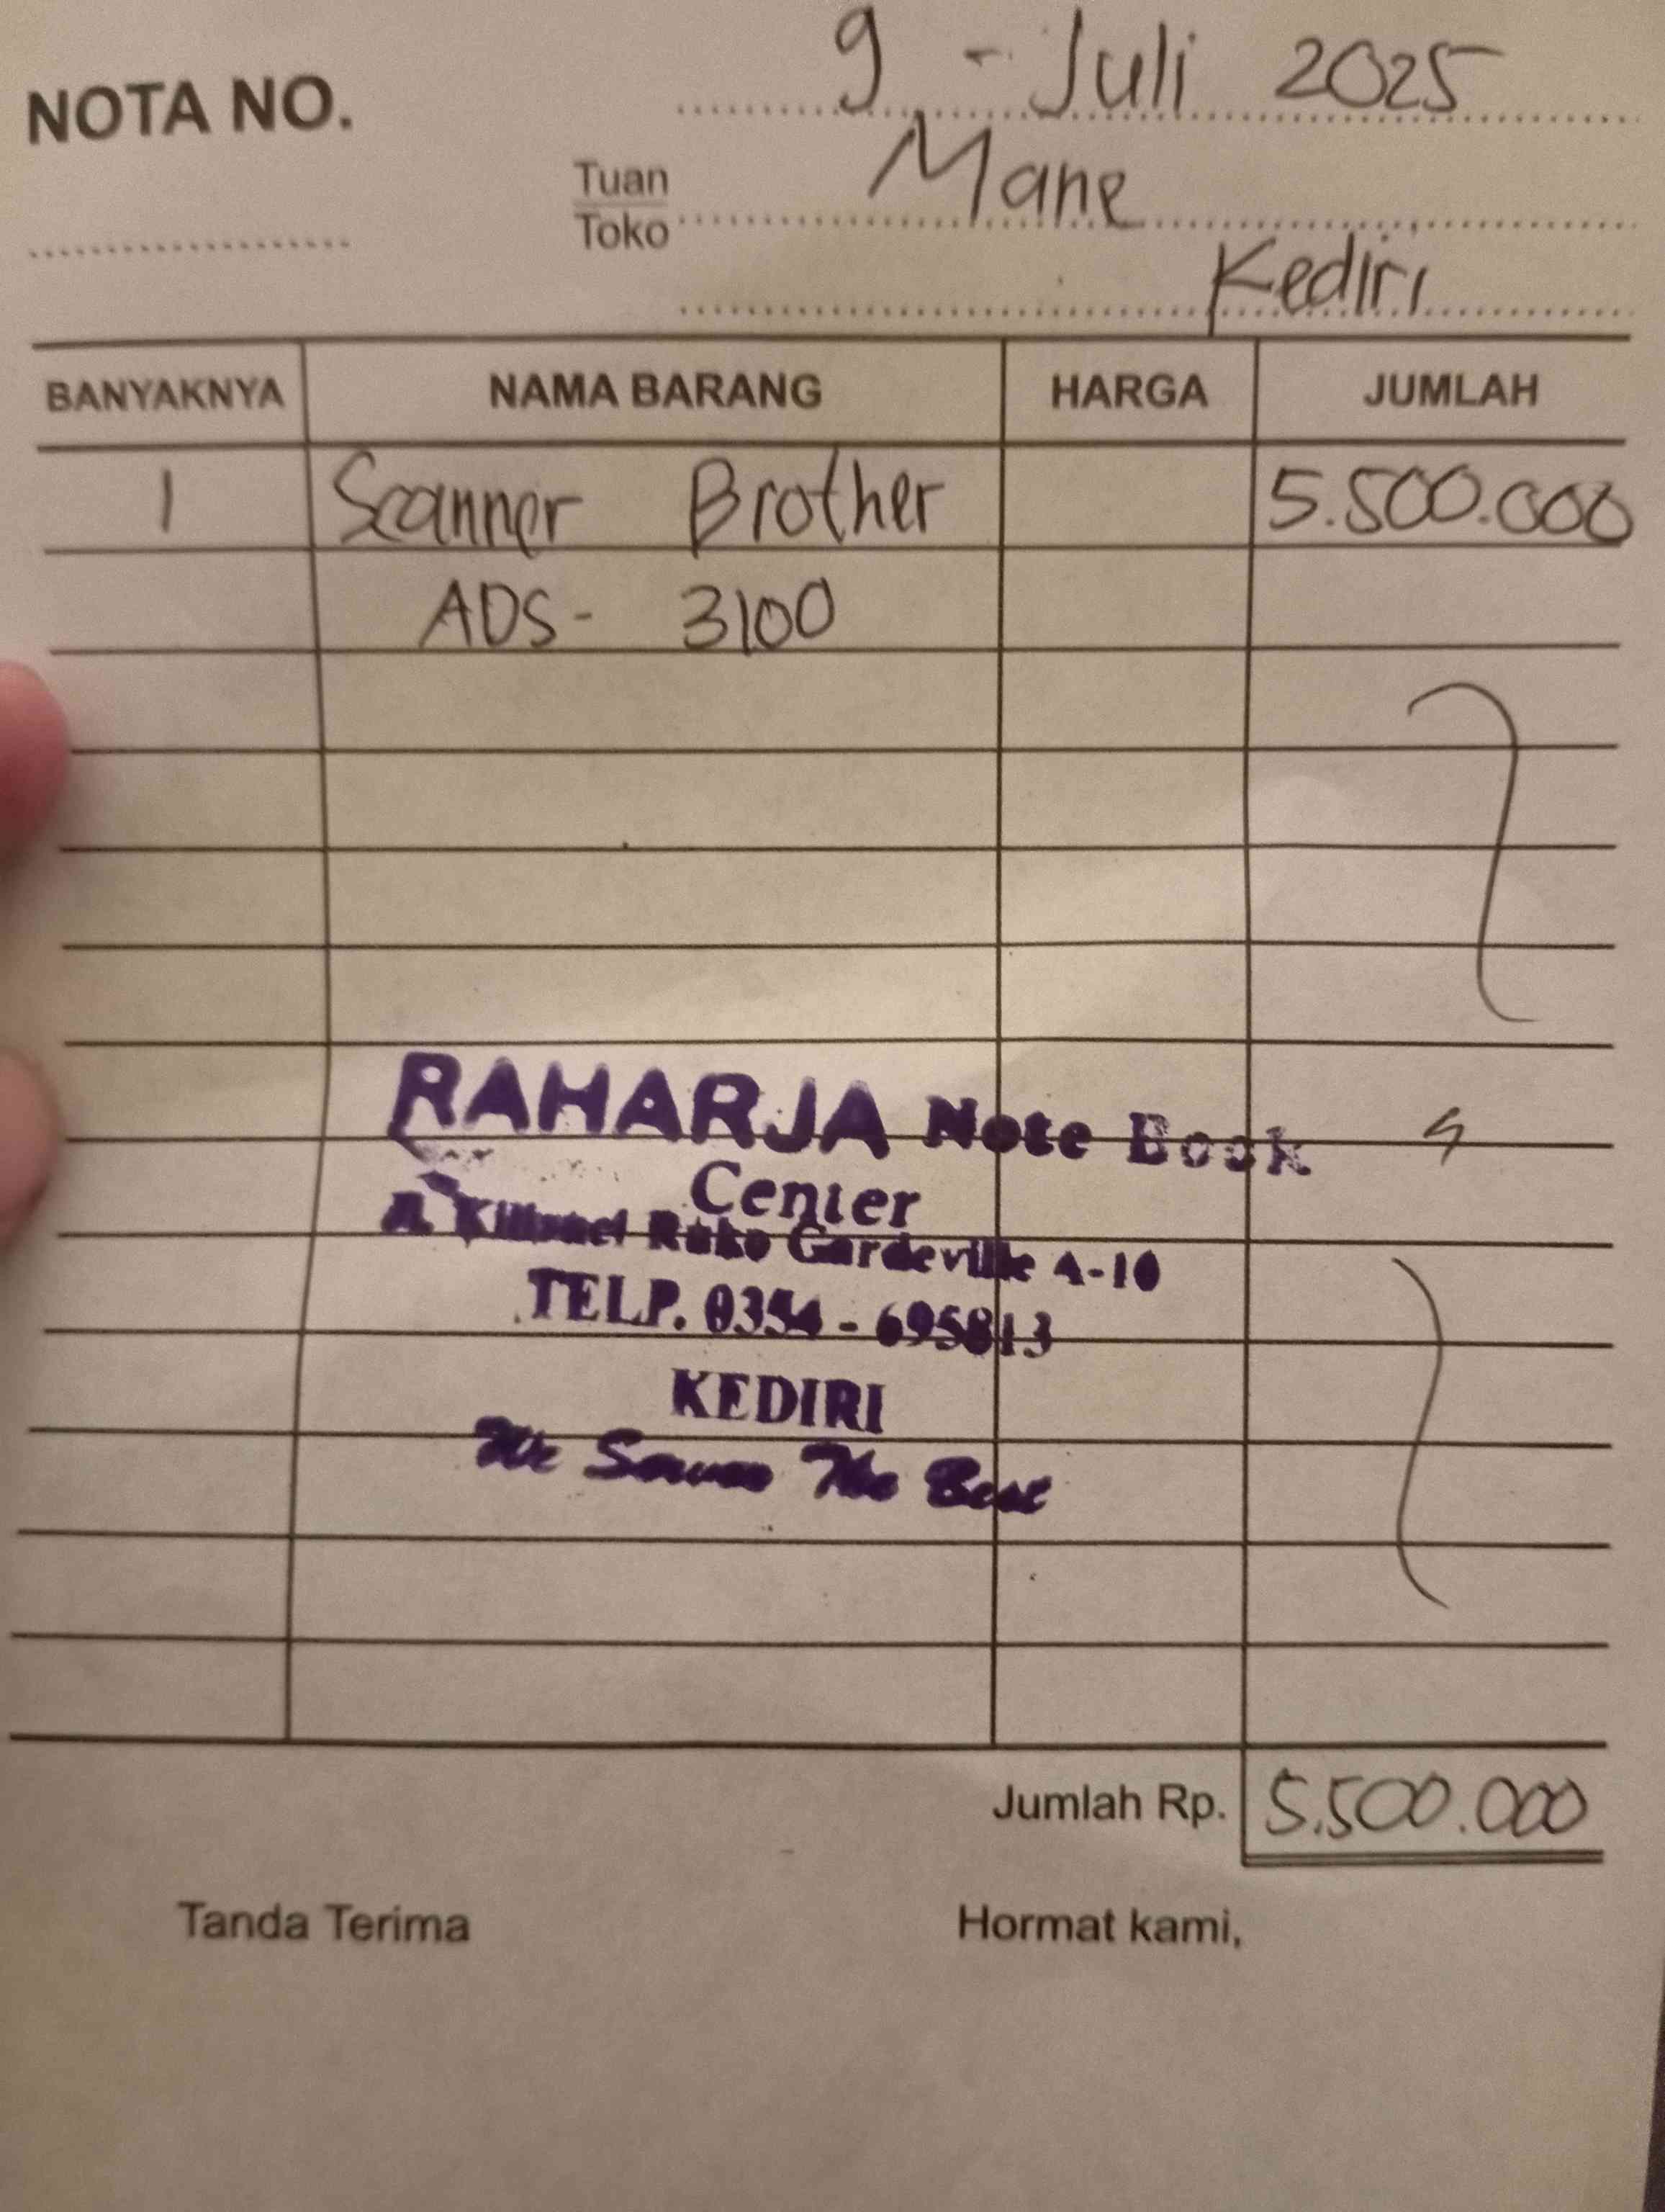 9 - Juli 2025
NOTA NO.
Tuan
Mane
Toko
Kediri
BANYAKNYA NAMA BARANG HARGA JUMLAH
1 Scanner Brother 5.500.000
ADS - 3100
RAHARJA Note Book
Center
Ruko Gardeville A-10
TELP. 0354 - 695813
KEDIRI
We The Best
Jumlah Rp. 5.500.000
Tanda Terima Hormat kami,